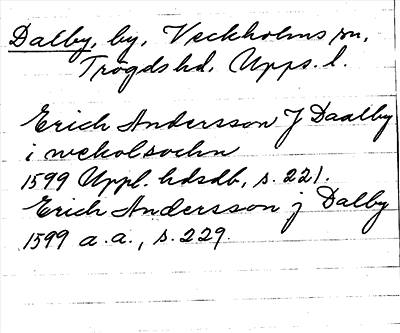 Dalby, by, Veckholms sn,
Trögds hd, Upps. l.
Erich Andersson J Daalby
i wekolsochn
1599 Uppl. hdsdb, s. 221.
Erich Andersson j Dalby
1599 a. a., s. 229.